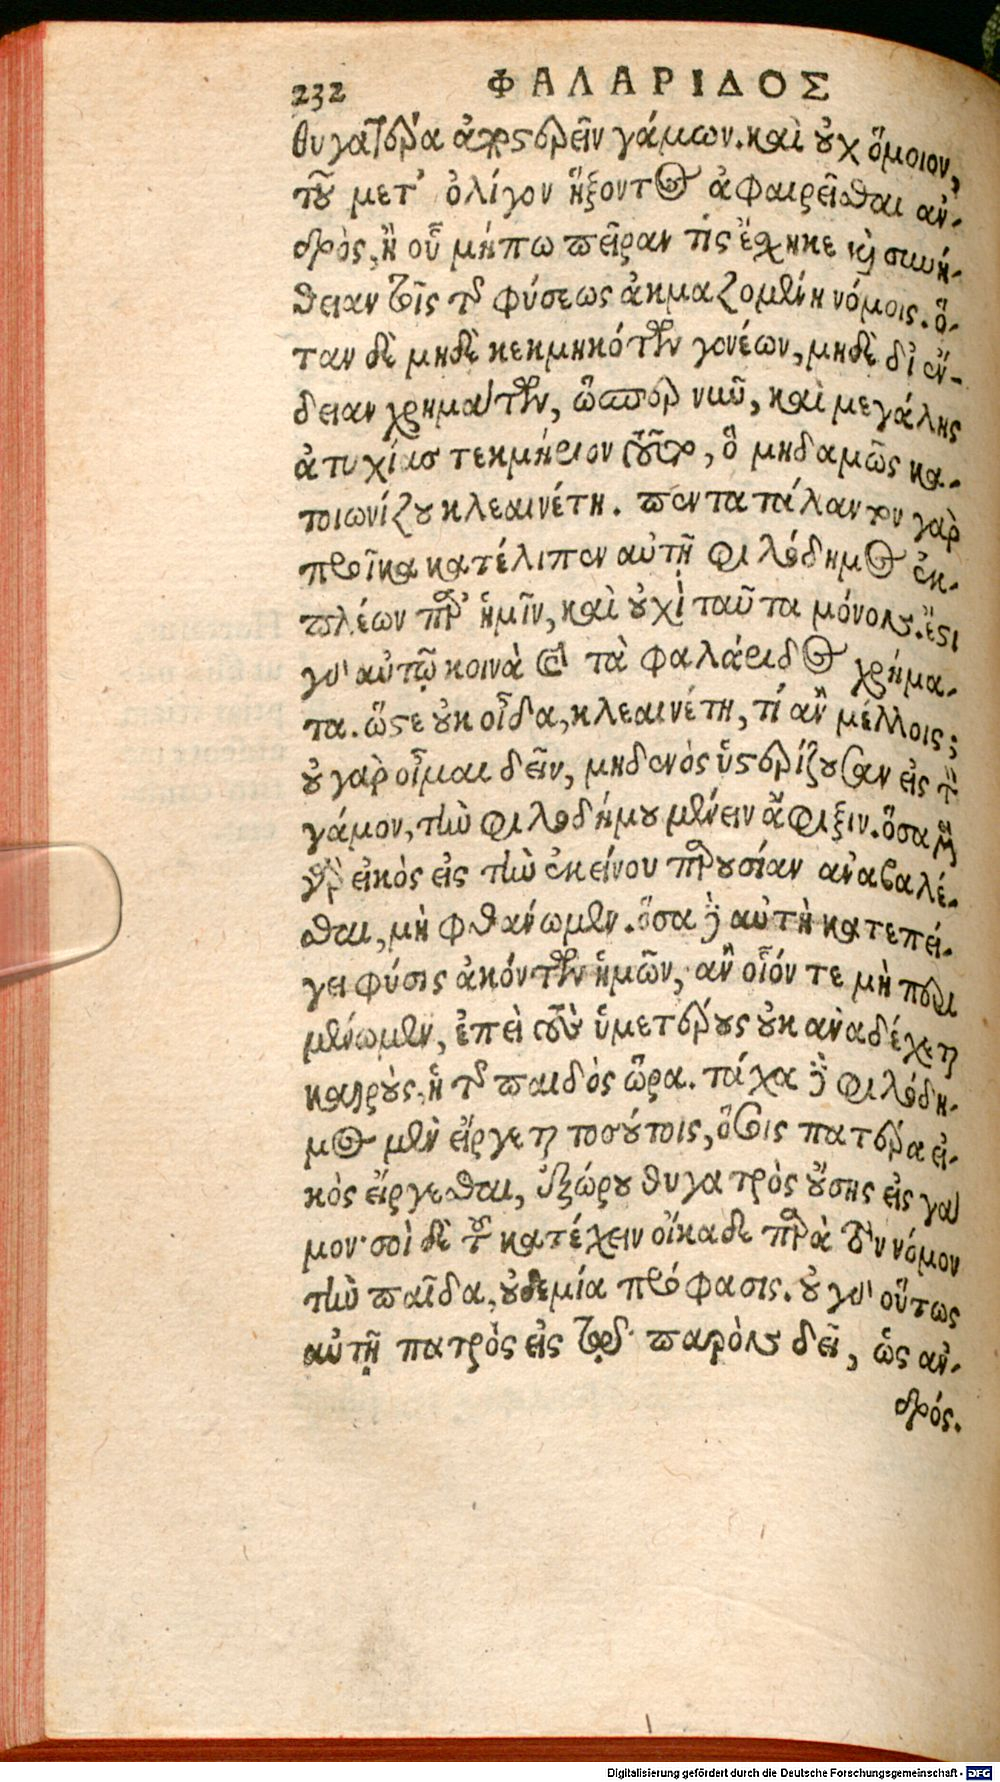 232 ΦΑΛΑΡΙΔΟΣ
θυγατέρα ἀποστερεῖν γάμων. καὶ οὐχ ὅμοιον,
τοῦ μετ' ὀλίγον ἥξοντος ἀφαιρεῖσθαι ἀν-
δρὸς, ἢ οὗ μήπω πεῖραν τὶς ἔσχηκε καὶ συνή-
θειαν τοῖς τῆς φύσεως ἀκμαζομένη νόμοις. ὅ-
ταν δὲ μηδὲ κεκμηκότων γονέων, μηδὲ δι' ἔν-
δειαν χρημάτων, ὥσπερ νῦν, καὶ μεγάλης
ἀτυχίας τεκμήριον τοῦτο, ὃ μηδαμῶς κα-
τοιωνίζου κλεαινέτη. πέντα τάλαντον γὰρ
προῖκα κατέλιπεν αὐτῇ φιλόδημος ἐκ-
πλέων παρ' ἡμῖν, καὶ οὐχὶ ταῦτα μόνον. ἔστι
γὰρ αὐτῷ κοινὰ καὶ τὰ φαλάριδος χρήμα-
τα. ὥστε οὐκ οἶδα, κλεαινέτη, τί ἂν μέλλοις;
οὐ γὰρ οἶμαι δεῖν, μηδενὸς ὑστερίζουσαν εἰς τὸν
γάμον, τὴν φιλοδήμου μένειν ἄφιξιν. ὅσα μὲν
γὰρ εἰκὸς εἰς τὴν ἐκείνου παρουσίαν ἀναβαλέ-
σθαι, μὴ φθάνωμεν. ὅσα δὲ αὐτὴ κατεπεί-
γει φύσις ἀκόντων ἡμῶν, ἂν οἷόν τε μὴ περι
μένωμεν, ἐπεὶ τοὺς ὑμετέρους οὐκ ἀναδέχεται
καιροὺς, ἡ τῆς παιδὸς ὥρα. τάχα δὲ φιλόδη-
μος μὲν εἴργεται τοσούτοις, ὅσοις πατέρα εἰ-
κὸς εἴργεσθαι, ἐξώρου θυγατρὸς οὔσης εἰς γά
μον· σοὶ δὲ τοῦ κατέχειν οἴκαδε παρὰ τὸν νόμον
τὴν παῖδα, οὐδεμία πρόφασις. οὐ γὰρ οὕτως
αὐτῇ πατρὸς εἰς τὸ παρὸν δεῖ, ὡς ἀν-
δρός.
Digitalisierung gefördert durch die Deutsche Forschungsgemeinschaft - DFG